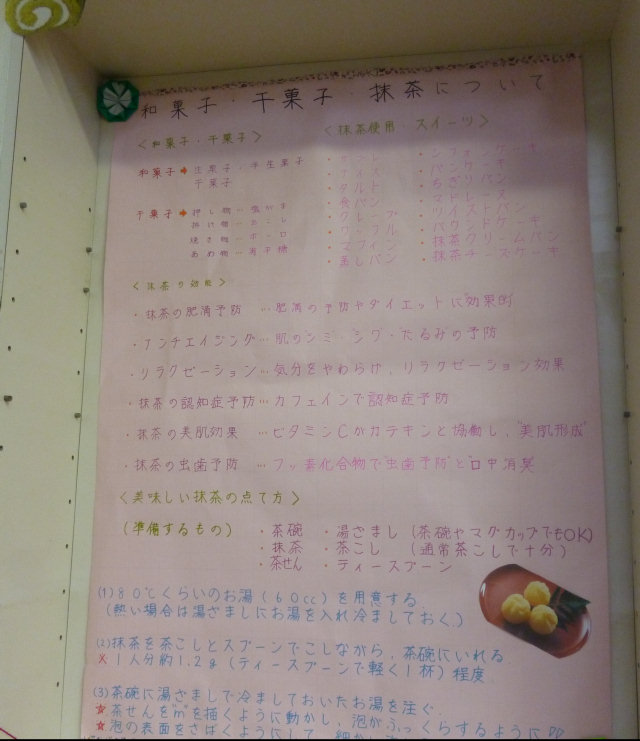 和菓子・干菓子・抹茶について
〈和菓子・干菓子〉
和菓子➡生菓子・半生菓子
干菓子
干菓子➡押し物…塩がま
掛け物…おこし
焼き物…ボーロ
あめ物…有平糖
〈抹茶使用・スイーツ〉
・サンド
・アイス
・タルト
・食パン
・クレープ
・ワッフル
・マフィン
・蒸しパン
・シフォンケーキ
・パンケーキ
・ちぎりパン
・マドレーヌ
・ツイストパン
・パウンドケーキ
・抹茶クリームパン
・抹茶チーズケーキ
〈抹茶の効能〉
・抹茶の肥満予防 …肥満の予防やダイエットに"効果的"
・アンチエイジング…肌のシミ・シワ・たるみの予防
・リラクゼーション…気分をやわらげ、リラクゼーション効果
・抹茶の認知症予防…カフェインで認知症予防
・抹茶の美肌効果 …ビタミンCがカテキンと協働し、"美肌形成"
・抹茶の虫歯予防 …フッ素化合物で"虫歯予防"と"口中消臭"
〈美味しい抹茶の点て方〉
(準備するもの) ・茶碗 ・湯さまし(茶碗やマグカップでもOK)
・抹茶 ・茶こし (通常茶こしで十分)
・茶せん ・ティースプーン
(1)80℃くらいのお湯(60cc)を用意する
(熱い場合は湯ざましにお湯を入れ冷ましておく.)
(2)抹茶を茶こしとスプーンでこしながら、茶碗にいれる
※1人分約1.2g(ティースプーンで軽く1杯)程度
(3)茶碗に湯ざましで冷ましておいたお湯を注ぐ.
★茶せんを"m"を描くように動かし、泡がふっくらするように
★泡の表面をさばくようにして、細か